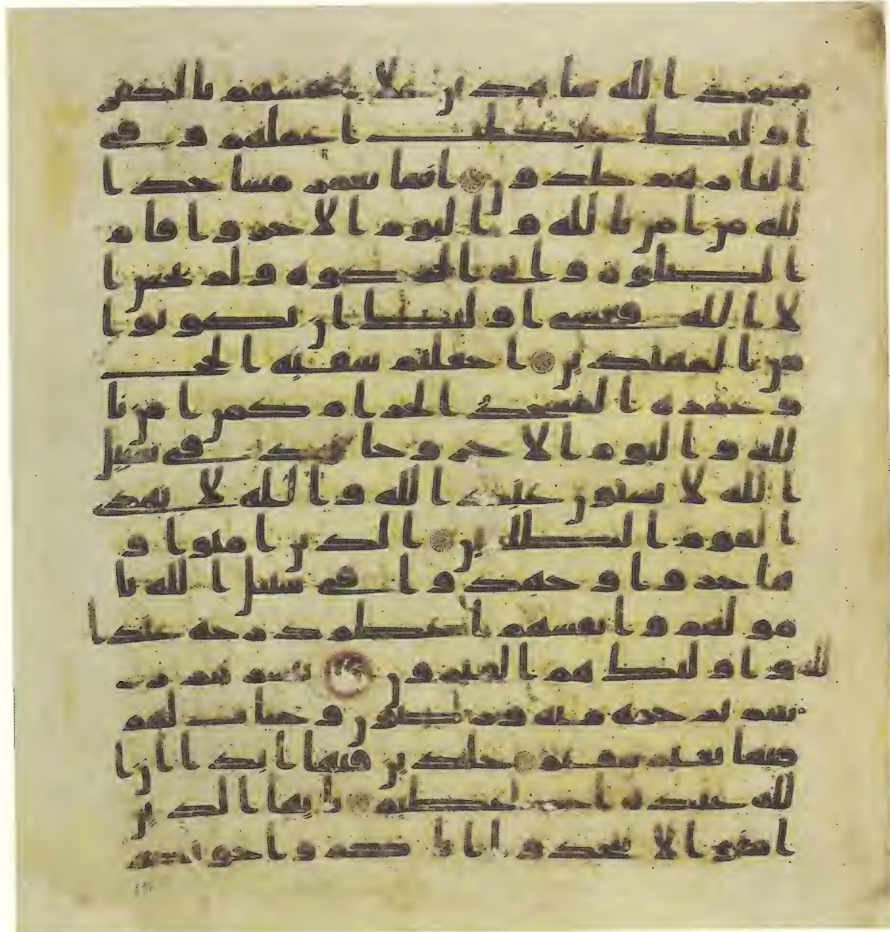 مسجد الله شهدين على انفسهم بالكفر
اولئك حبطت اعملهم وفى
النار هم خلدون انما يعمر مسجد ا
لله من امن بالله واليوم الاخر واقام
الصلوة واتى الزكوة ولم يخش ا
لا الله فعسى اولئك ان يكونوا
من المهتدين اجعلتم سقيه الحج
وعمره المسجد الحرام كمن امن با
لله واليوم الاخر وجهد فى سبيل
الله لا يستون عند الله والله لا يهدى
القوم الظلمين الذين امنوا و
هاجروا وجهدوا فى سبيل الله با
مولهم وانفسهم اعظم درجه عند ا
لله واولئك هم الفيزون يبشرهم ر
بهم برحمه منه ورضون وجنت لهم
فيها نعيم مقيم خلدين فيها ابدا ان ا
لله عنده اجر عظيم يايها الذين
امنوا لا تتخذوا اباكم واخونكم